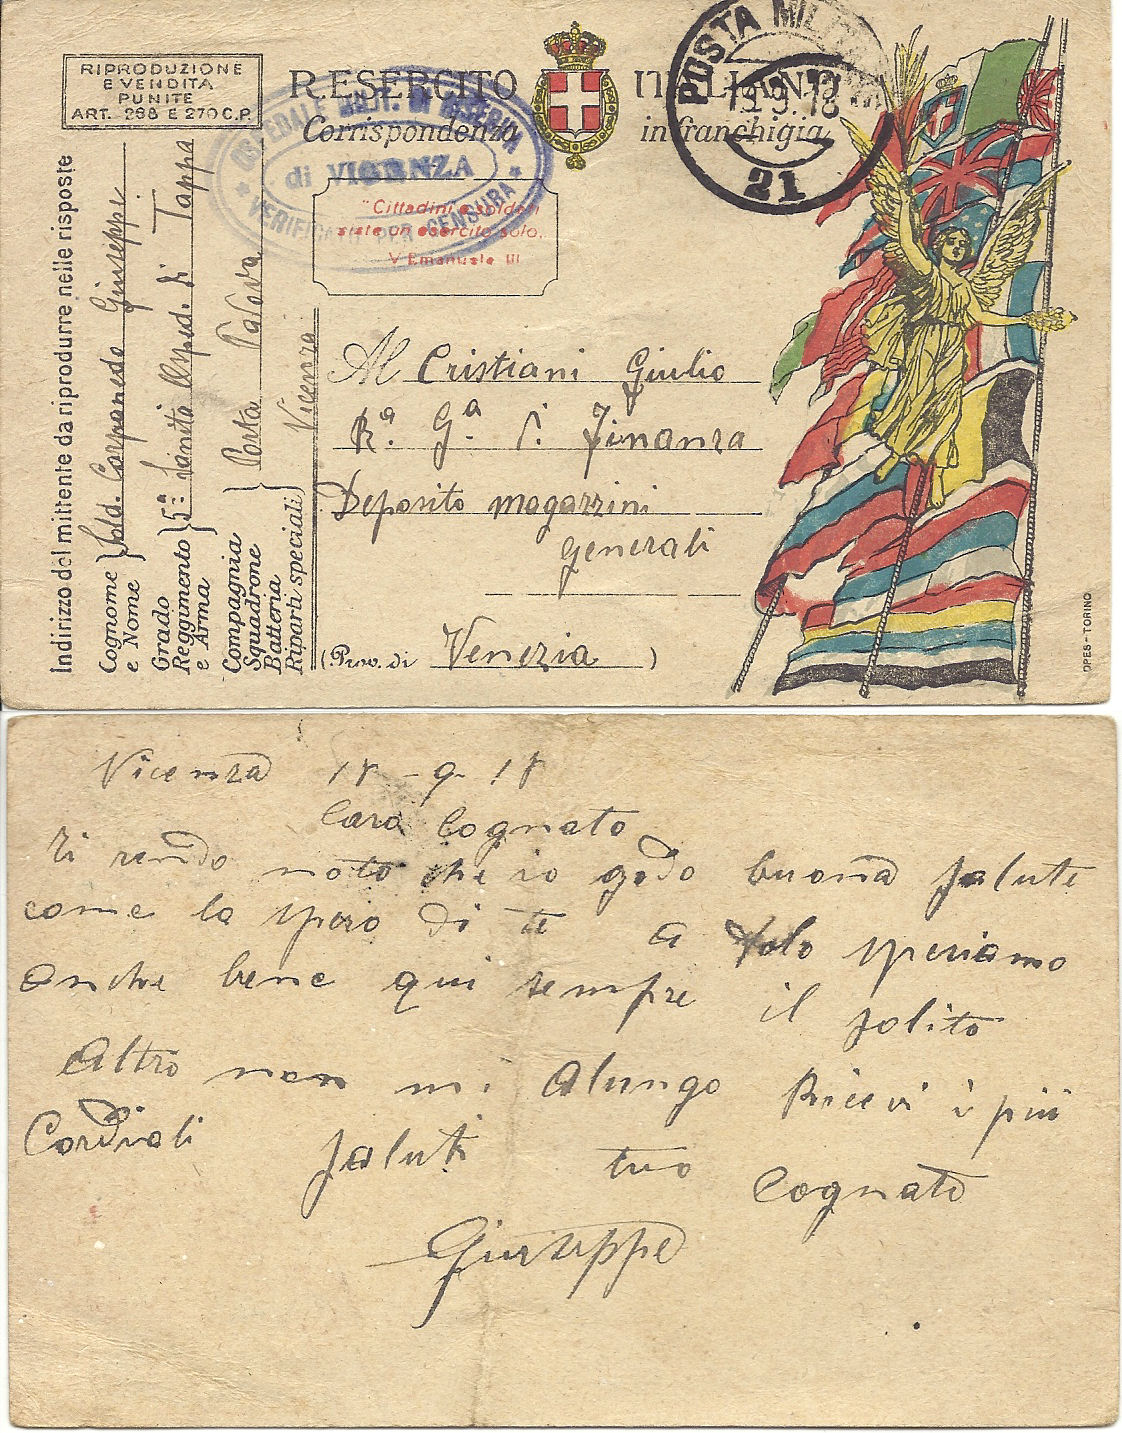 RIPRODUZIONE
E VENDITA
PUNITE
ART. 288 E 270 C.P.
R. ESERCITO ITALIANO
Corrispondenza in franchigia
OSPEDALE MILIT. DI RISERVA
di VICENZA
VERIFICATO PER CENSURA
POSTA MILITARE
19.9.18
21
"Cittadini e soldati
siate un esercito solo.
V Emanuele III
Indirizzo del mittente da riprodurre nelle risposte
Cognome e Nome } Sold. Carpanedo Giuseppe
Grado
Reggimento e Arma } 5ª Sanità Osped. di Tappa
Compagnia
Squadrone
Batteria
Riparti speciali } Porta Padova
Vicenza
Al Cristiani Giulio
Rª. Gª. di Finanza
Deposito magazzini
Generali
(Prov. di Venezia )
OPES - TORINO
Vicenza 18 - 9 - 18
Caro Cognato
Ti rendo noto che io godo buona salute
come la spero di te a Polo speriamo
anche bene qui sempre il solito
Altro non mi alungo Ricevi i più
Cordiali saluti tuo Cognato
Giuseppe